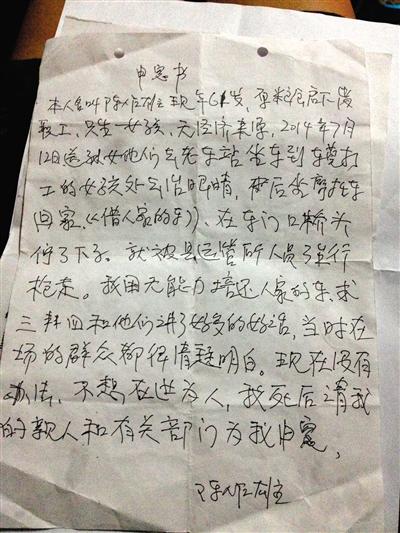 申冤书
本人名叫陈佐雄主现年61岁，原粮食局下岗
职工，只生一女孩，无经济来源，2014年7月
12日送孙女她们去老车站坐车到  打
工的女孩处去治眼睛，而后坐摩托车
回家，《借人家的车》、在车门口桥头
停了下了。就被县运管所人员强行
抢走。我因无能力培还人家的车，求
三拜四和他们讲了好多的好话，当时在
场的群众都很清疑明白。现在没有
办法，不想在世为人，我死后请我
的亲人和有关部门为我申冤，
陈